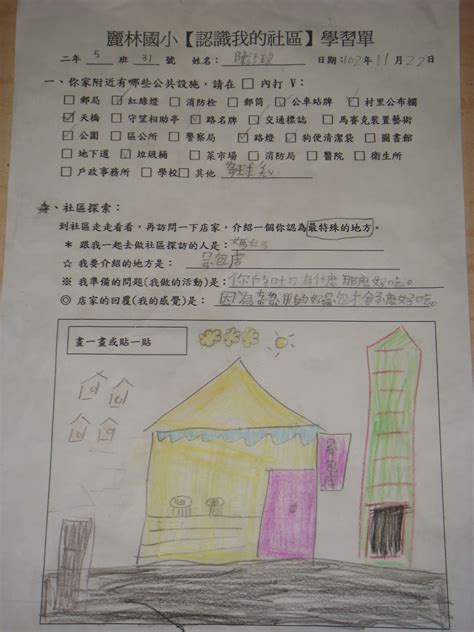 麗林國小【認識我的社區】學習單
二年 5 班 31 號 姓名： 日期：102年11月22日
一、你家附近有哪些公共設施，請在□內打V：
□郵局 ☑紅綠燈 □消防栓 □郵筒 □公車站牌 □村里公布欄
☑天橋 □守望相助亭 ☑路名牌 ☑交通標誌 □馬賽克裝置藝術
☑公園 □區公所 □警察局 ☑路燈 ☑狗便清潔袋 □圖書館
□地下道 ☑垃圾桶 □菜市場 □消防局 □醫院 □衛生所
□戶政事務所 □學校 □其他
二、社區探索：
到社區走走看看，再訪問一下店家，介紹一個你認為最特殊的地方。
＊ 跟我一起去做社區探訪的人是：媽媽
☆ 我要介紹的地方是：包店
※ 我準備的問題(我做的活動)是：你的 有什麼那麼好吃。
◎ 店家的回覆(我的感覺)是：因為 用的 包才會那麼好吃。
畫一畫或貼一貼
包店